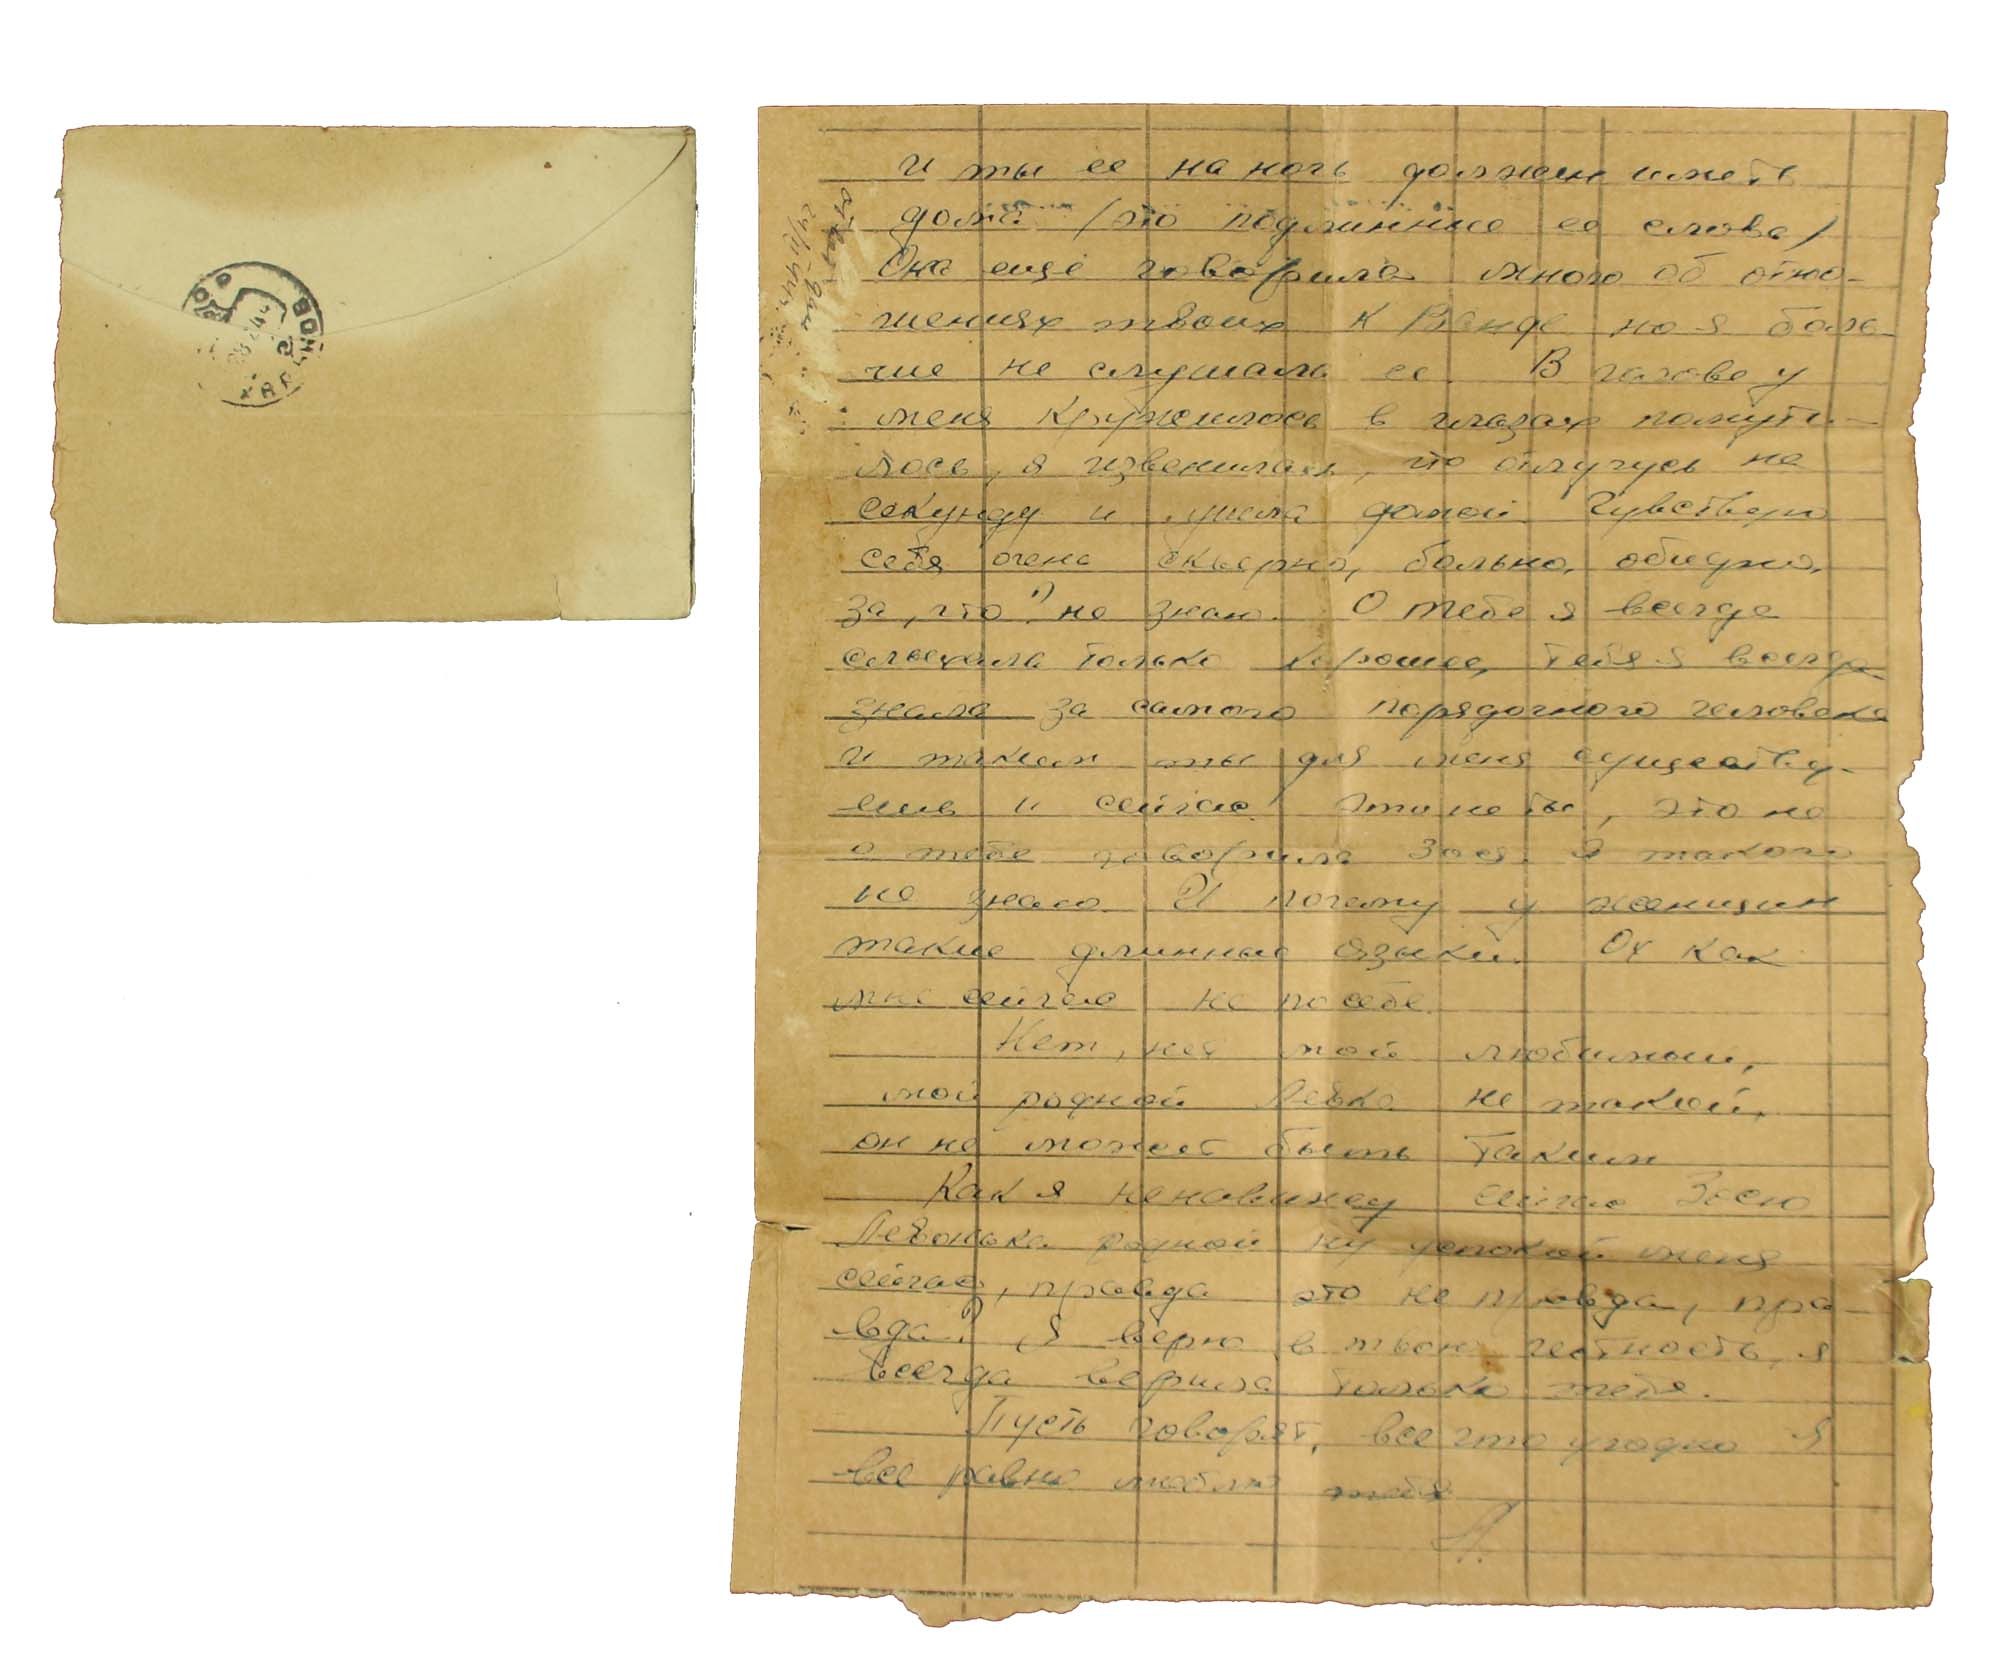 и ты ее на ночь должен иметь
дома /это подлинные ее слова/
Она ещё говорила много об отно-
шениях твоих к Ванде но я боль-
ше не слушала ее. В голове у
меня кружилось в глазах помути-
лось, я извенилась, что отлучусь на
секунду и ушла домой. Чувствую
себя очень скверно, больно, обидно,
за, что? не знаю. О тебе я всегда
слыхала только хорошее, тебя я всегда
знала за самого порядочного человека
и таким ты для меня существу-
ешь и сейчас. Это не ты, это не
о тебе говорила Зося. Я такого
не знаю. И почему у женщин
такие длинные языки. Ох как
мне сейчас не по себе.
Нет, нет мой любимый,
мой родной Лёвка не такой,
он не может быть таким
Как я ненавижу сейчас Зосю
Лёвонька родной ну успокой меня
сейчас, правда это не правда, пра-
вда? Я верю в твою честность, я
всегда верила только тебе.
Пусть говорят, все что угодно я
все равно люблю тебя
ответ дан
24/II 44